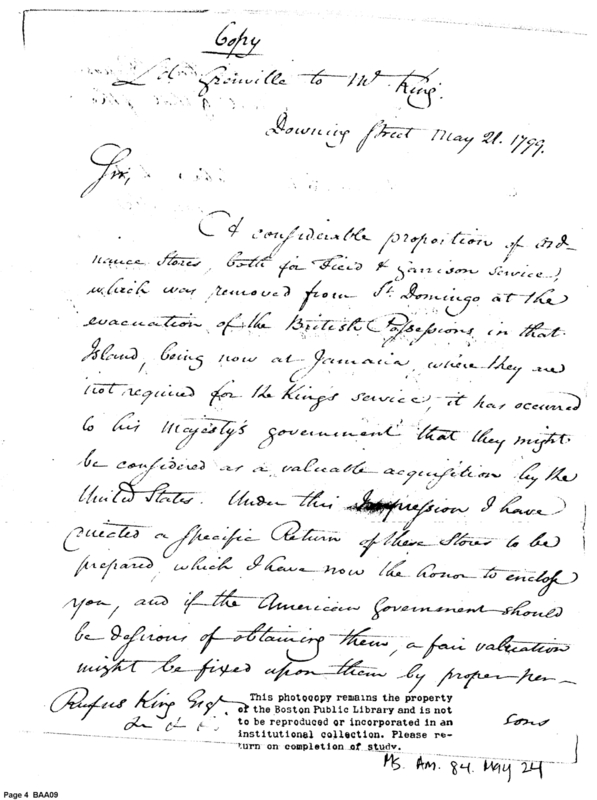 Copy
Ld. Grenville to Mr. King.
Downing Street May 21. 1799.
Sir,
A considerable proposition of ord-
nance Stores, both for Field & garrison service,
which was removed from St. Domingo at the
evacuation of the British Possessions in that
Island, being now at Jamaica, where they are
not required for the Kings service, it has occurred
to his Majesty's government that they might
be considered as a valuable acquisition by the
United States. Under this Impression I have
directed a specific Return of these Stores to be
prepared, which I have now the honor to enclose
you, and if the American Government should
be desirous of obtaining them, a fair valuation
might be fixed upon them by proper per-
sons
Rufus King Esqr.
This photocopy remains the property
of the Boston Public Library and is not
to be reproduced or incorporated in an
institutional collection. Please re-
turn on completion of study.
Ms. Am. 84. May 24
Page 4 BAA09